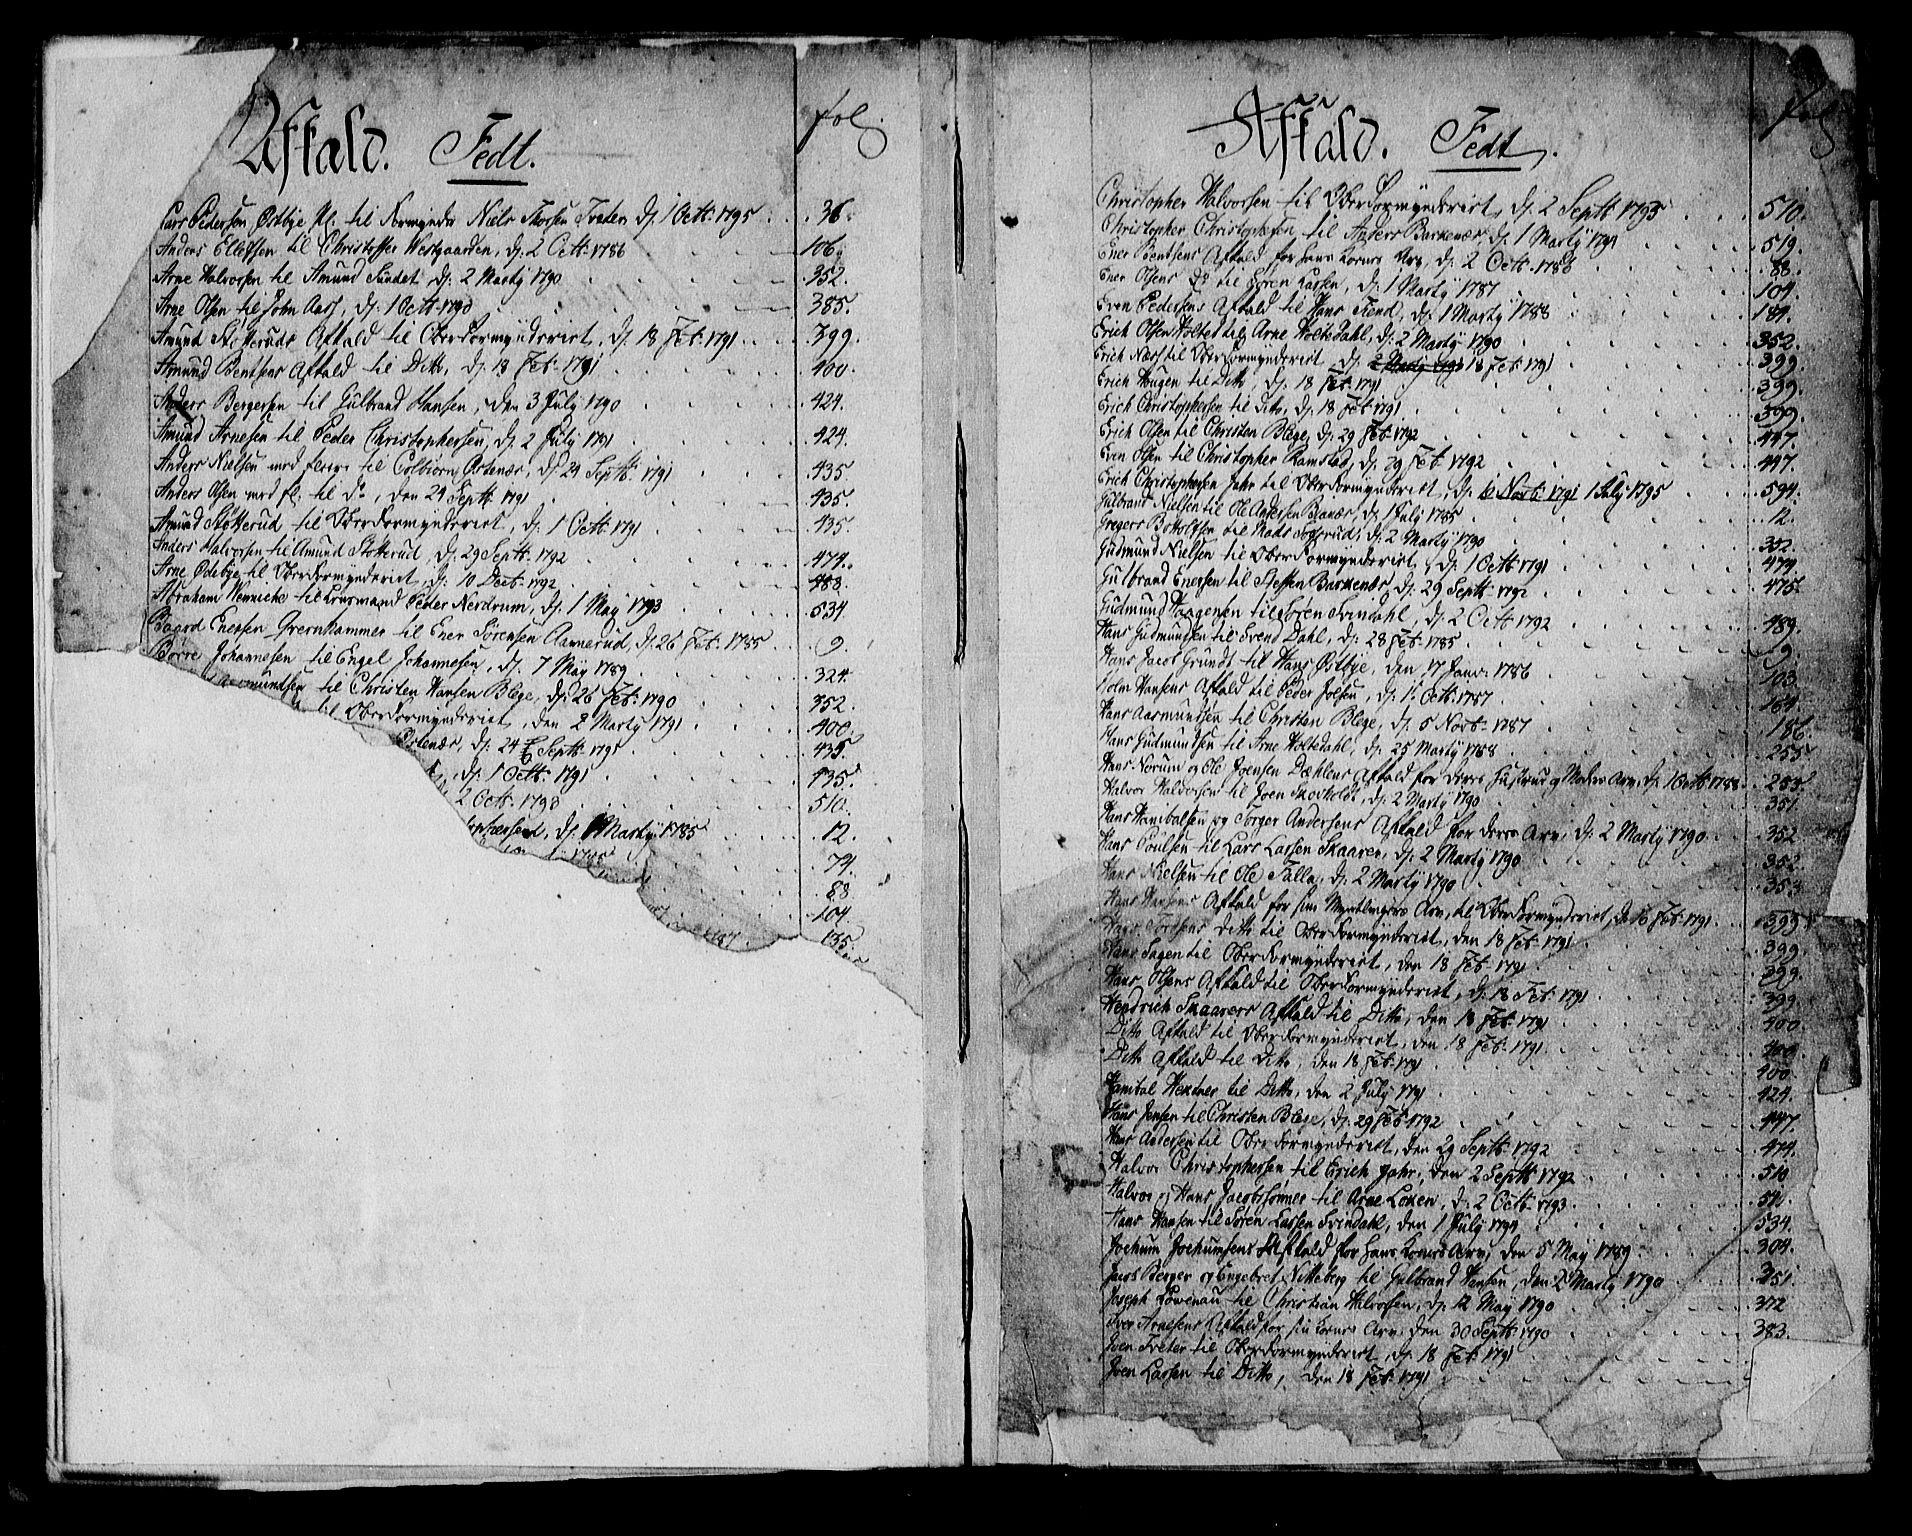 Affald. Fedt. fol
Lars Pedersen Østbye fl. til Formynder Niels Thorsen Træter dj. 1 Octb: 1795 . 36.
Anders Ellefsen til Christoffer Westgaarden, dj. 2 Octb: 1786 106.
Arne Halvorsen til Amund Sundet, dj. 2 Martÿ 1790 352.
Arne Olsen til John Aass, dj. 1 Octb. 1790 385.
Amund Støtteruds Affald til Oberformynderiet, dj. 18 Feb: 1791 399.
Amund Bentsens Affald til Ditto, dj. 18 Feb: 1791 400.
Anders Bergersen til Gulbrand Hansen, den 3 Julÿ 1790 424.
Amund Arnesen til Peder Christophersen, dj. 2 Julÿ 1791 424.
Anders Nielsen med flere til Colbiørn Østenær, dj. 24 Septb: 1791 435.
Anders Olsen med fl. til do, den 24 Septb: 1791 435.
Amund Støtterud til Oberformynderiet, dj. 1 Octb: 1791 435.
Anders Halvorsen til Amund Støtterud, dj. 29 Septb: 1792 474.
Arne Ødebye til Oberformynderiet, dj. 10 Decb: 1792 488.
Abraham Hennicke til Lensmand Peder Nerdrum, dj. 1 Maÿ 1793 534
Baard Enersen Grørnhammer til Ener Sørensen Aamerud, dj. 26 Feb: 1785 9.
Børre Johannesen til Engel Johannesen, dj. 7 Maÿ 1789. 324.
mundsen til Christen Hansen Blege, dj. 26 Feb: 1790 352.
til Oberformynderiet, den 2 Martÿ 1791 400.
Østenær, dj. 24 Septb: 1791 435.
, dj. 1 Octb: 1791 435.
2 Octb: 1793 510.
tophersen, dj. 1 Martÿ 1785 12.
74.
88
104
1787. 135.
Affald. Fedt. fol
Christopher Halvorsen til Oberformynderiet, dj. 2 Septb 1793 510.
Christopher Christophersen til Anders Barkenær, dj. 1 Martÿ 1794 519.
Ener Bentsens Affald for hans Kones Arv, dj. 2 Octb: 1786 88.
Ener Olsens do til Søren Larsen, dj. 1 Martÿ 1787 104.
Even Pedersens Affald til Hans Tiend, dj. 1 Martÿ 1788 184.
Erich Olsen Holtet til Arne Holtedahl, dj. 2 Martÿ 1790 352.
Erich Næss til Oberformynderiet, dj. 2 Martÿ 1793 18 Feb: 1791 399.
Erich Haugen til Ditto, dj. 18 Feb: 1791 399.
Erich Christophersen til Ditto, dj. 18 Feb: 1791. 399.
Erich Olsen til Christen Blege, dj. 29 Feb: 1792 447.
Even Olsen til Christopher Ramstad, dj. 29 Feb: 1792 447.
Erich Christophersen Jahr til Oberformynderiet, dj. 10 Novb: 1791 1 Julÿ 1795 594.
Gulbrand Nielsen til Ole Andersen Barnæs, dj. 1 Julÿ 1785 12.
Gregers Botholfsen til Mads Fossrud, dj. 2 Martÿ 1790 352.
Gudmund Nielsen til Oberformynderiet, dj. 1 Octb: 1791 474.
Gulbrand Enersen til Steffen Barkenæs, dj. 29 Septb: 1792 475.
Gudmund Haagensen til Søren Svindahl, dj. 2 Octb 1792 489.
Hans Gudmundsen til Svend Dahl, dj. 28 Feb: 1785 9.
Hans Jacob Grundt til Hans Østbye, den 17 Janv: 1786 103.
Holm Hansens Affald til Peder Joesen, dj. 1 Octb: 1787 164
Hans Aasmundsen til Christen Blege, dj. 5 Novb: 1787 186.
Hans Gudmundsen til Arne Holtedahl, dj. 25 Martÿ 1788 255
Hans Norum og Ole Joensen Dæhlens Affald for deres Hustrue og Moders Arv, dj. 1 Octb: 1788 255.
Halvor Halvorsen til Joen Skovholdt, dj. 2 Martÿ 1790 351.
Hans Hanibalsen og Torger Andersens Affald for deres Arv, dj. 2 Martÿ 1790 352
Hans Poulsen til Lars Larsen Skaaren, dj. 2 Martÿ 1790 352.
Hans Nielsen til Ole Falla, dj. 2 Martÿ 1790 353
Hans Hansens Affald for sin Myndlings Arv, til Oberformynderiet, den 16 Feb: 1791 399
Hans Torsens Ditto til Oberformynderiet, den 18 Feb: 1791 399.
Hans Sagen til Oberformynderiet, den 18 Feb: 1791 399.
Hans Olsens Affald til Oberformynderiet, dj. 18 Feb: 1791 399
Hendrich Skaarers Affald til Ditto, den 18 Feb: 1791 400
Ditto Affald til Oberformynderiet, den 18 Feb: 1791 400
Ditto Affald til Ditto, den 18 Feb: 1791 400
Hanibal Hexnes til Ditto, den 2 Julÿ 1791 424.
Hans Jensen til Christen Blege, dj. 29 Feb: 1792 447.
Hans Andersen til Oberformynderiet, den 29 Septb: 1792 474.
Halvor Christophersen til Erich Jahr, den 2 Septb 1792 510
Halvor og Hans Jacobsønner til Arne Loken, dj. 2 Octb: 1793 510.
Hans Hansen til Søren Larsen Svindahl, den 1 Julÿ 1794 534.
Jochum Jochumsens Affald for hans Kones Arv, den 5 Maÿ 1789 304.
Jacob Berger og Engebret Nitteberg til Gulbrand Hansen, den 2 Martÿ 1790 351.
Joseph Løwenau til Christian Halvorsen, dj. 12 Maÿ 1790 372
Iver Arnesens Affald for sin Kones Arv, den 30 Septb: 1790 383.
Joen Træter til Oberformynderiet, dj. 18 Feb: 1791
Joen Larsen til Ditto, den 18 Feb: 1791